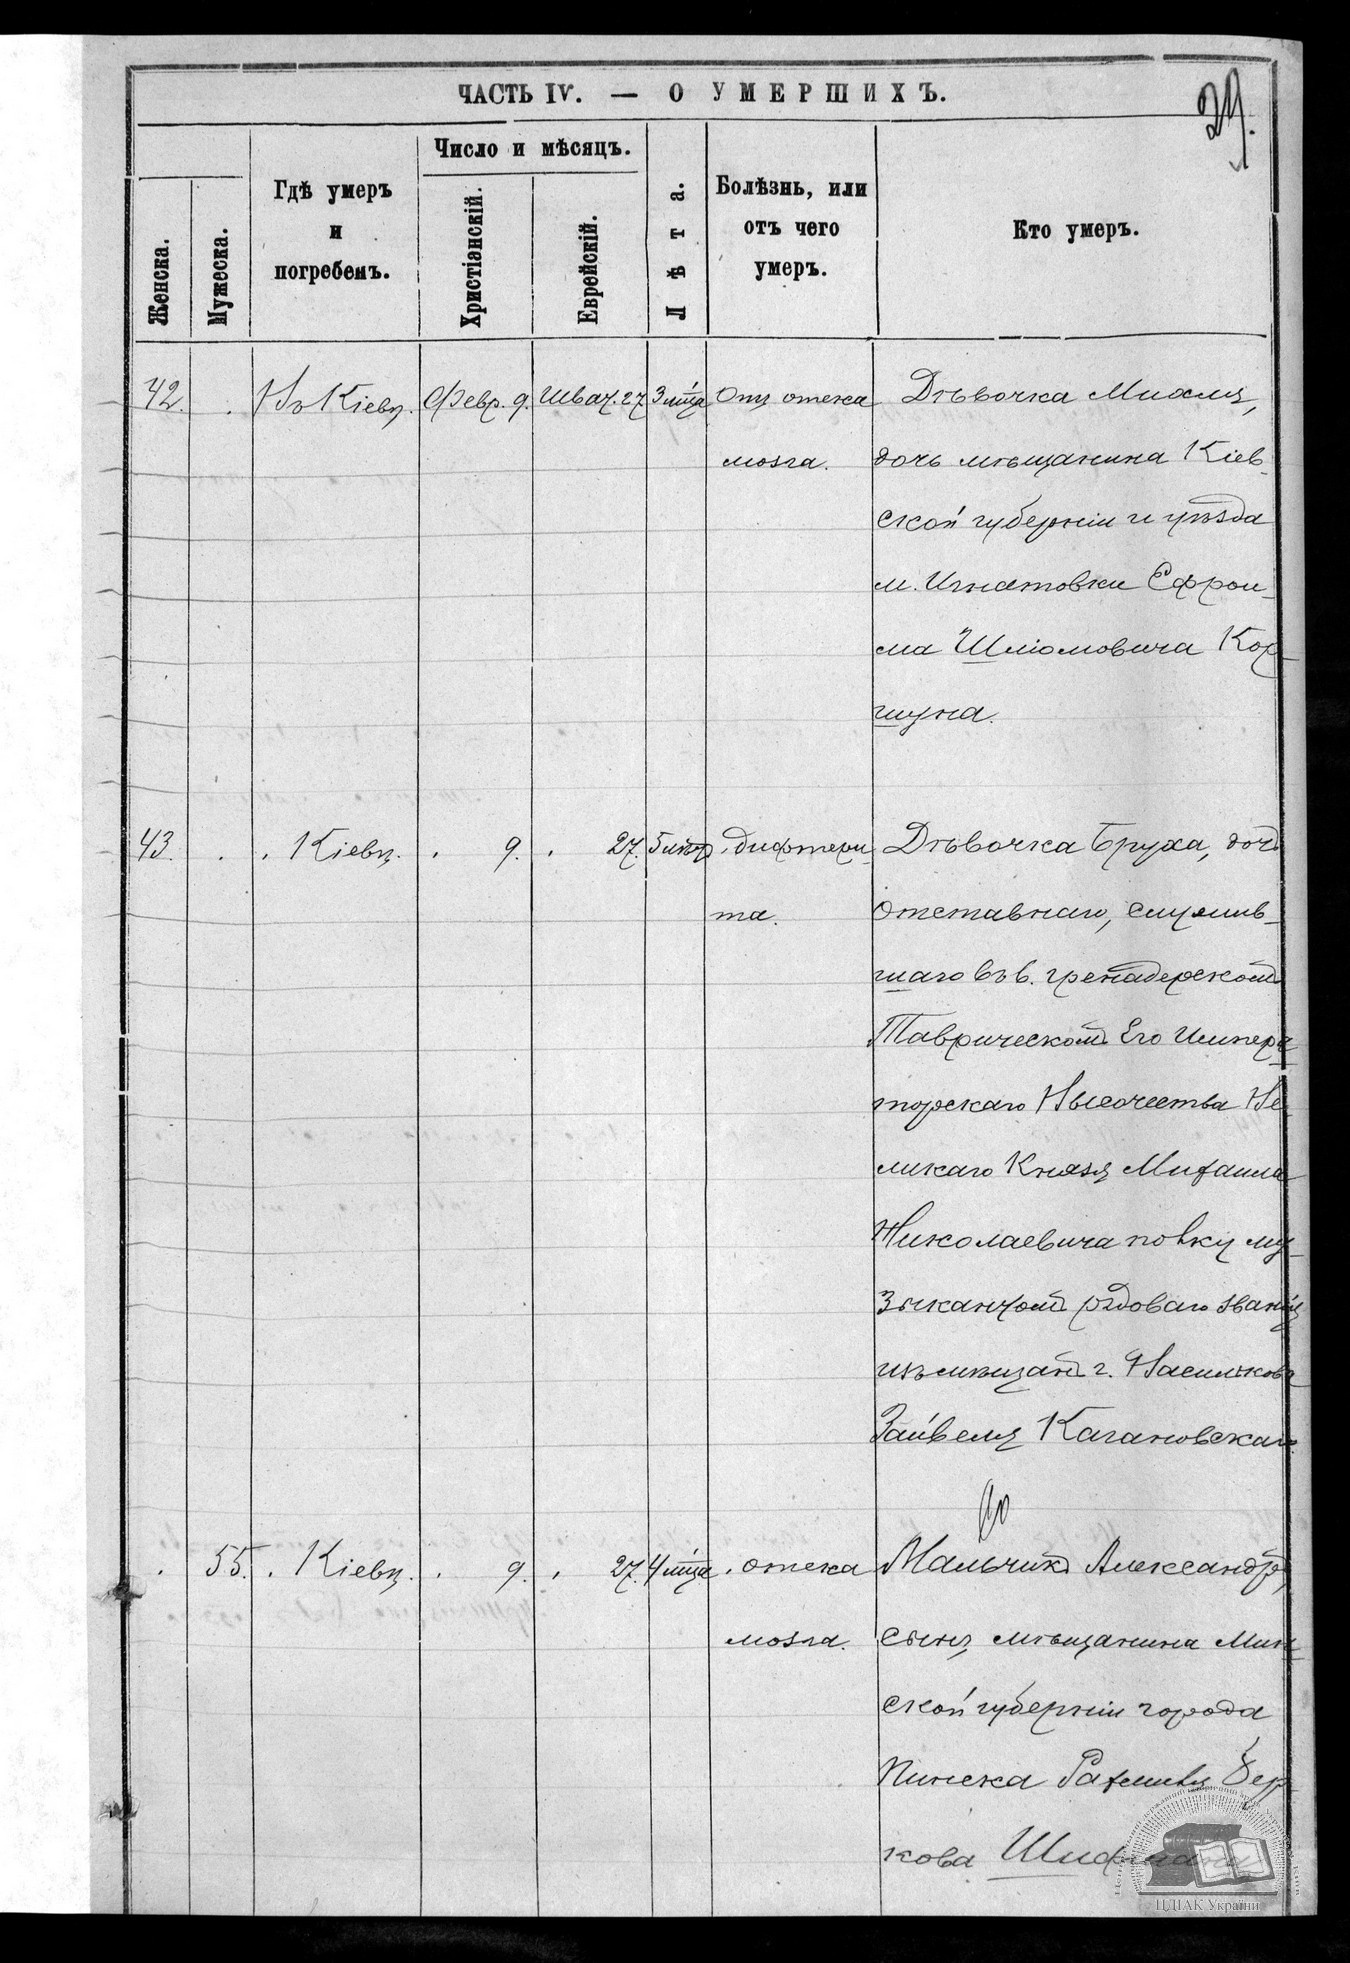 ЧАСТЬ IV. — О УМЕРШИХЪ.
29.
Женска.
Мужеска.
Гдѣ умеръ
и
погребенъ.
Число и мѣсяцъ.
Христіанскій.
Еврейскій.
Лѣта.
Болѣзнь, или
отъ чего
умеръ.
Кто умеръ.
42. . Въ Кіевѣ. Февр. 9. Шват. 27 3 мца Отъ отека Дѣвочка
мозга. дочь мѣщанина Кіев-
ской губерніи и уѣзда
м. Игнатовки Ефрои-
ма Шліомовича Кор-
шуна.
43. . . Кіевѣ. . 9. . 27. 5 . дифтери- Дѣвочка Бруха, дочь
та. отставнаго, служив-
шаго въ 6. гренадерскомъ
Таврическомъ Его Импера-
торскаго Высочества Ве-
ликаго Князя Михаила
Николаевича полку му-
зыкантомъ рядоваго званія
изъ мѣщанъ г. Василькова
Зайвеля Кагановскаго.
. 55. . Кіевѣ. . 9. . 27. 4 мца . отека Мальчикъ Александръ,
мозга. сынъ мѣщанина Мин-
ской губерніи города
Пинска Бер-
кова
ЦДІАК України